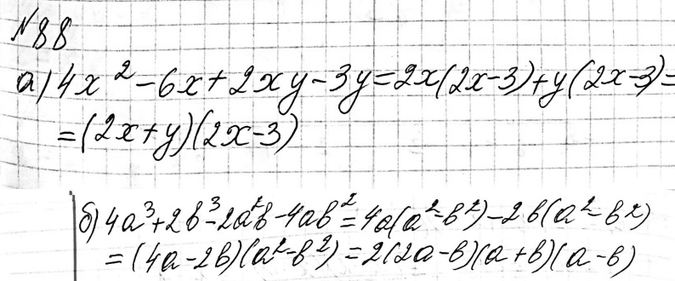 №88
а) 4x² - 6x + 2xy - 3y = 2x(2x-3) + y(2x-3) =
= (2x+y)(2x-3)
б) 4a³ + 2b³ - 2a²b - 4ab² = 4a(a²-b²) - 2b(a²-b²)
= (4a-2b)(a²-b²) = 2(2a-b)(a+b)(a-b)